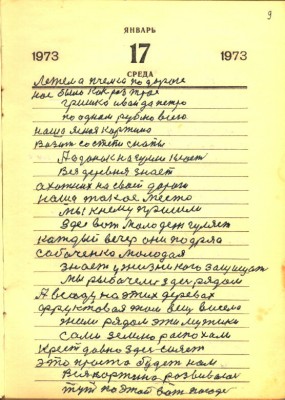 9
ЯНВАРЬ
1973 17 1973
СРЕДА
Летела пчелка по дороге
нас было как раз трое
гришко иван да петро
по одном рублю всего
наша ясная картина
Возит со степи снопы
А дядька на гумни
Вся деревня знает
охотник на своей дороге
наша такое место
мы к нему пришли
Здес вот молодеж гуляет
каждый вечер они подряд
собаченка молодая
знает у жизни кого защищат
мы рыбачем здес рядом
А всаду на этих деревах
фруктовая этой вещ висело
жили рядом эти мужики
сами землю распохали
Крест давно здес силяет
это просто будет нам
Вся картина розвивалас
тут по этой вот погоде